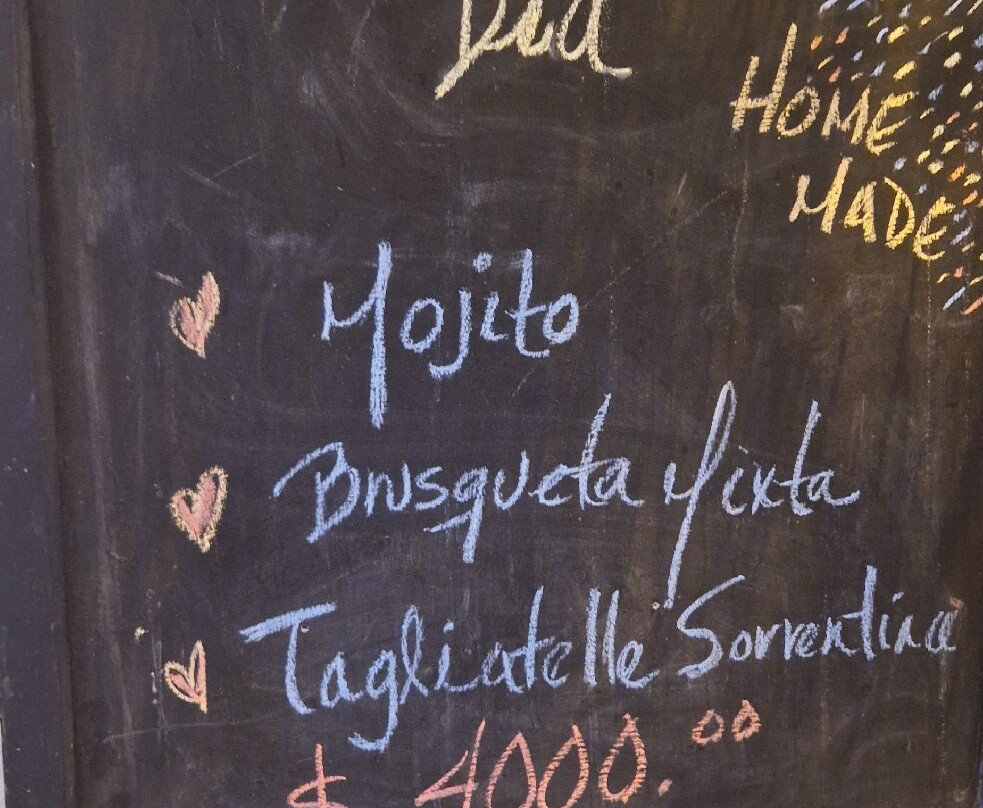 HOME
MADE
Mojito
Brusqueta Mixta
Tagliatelle Sorrentina
$ 4000.00